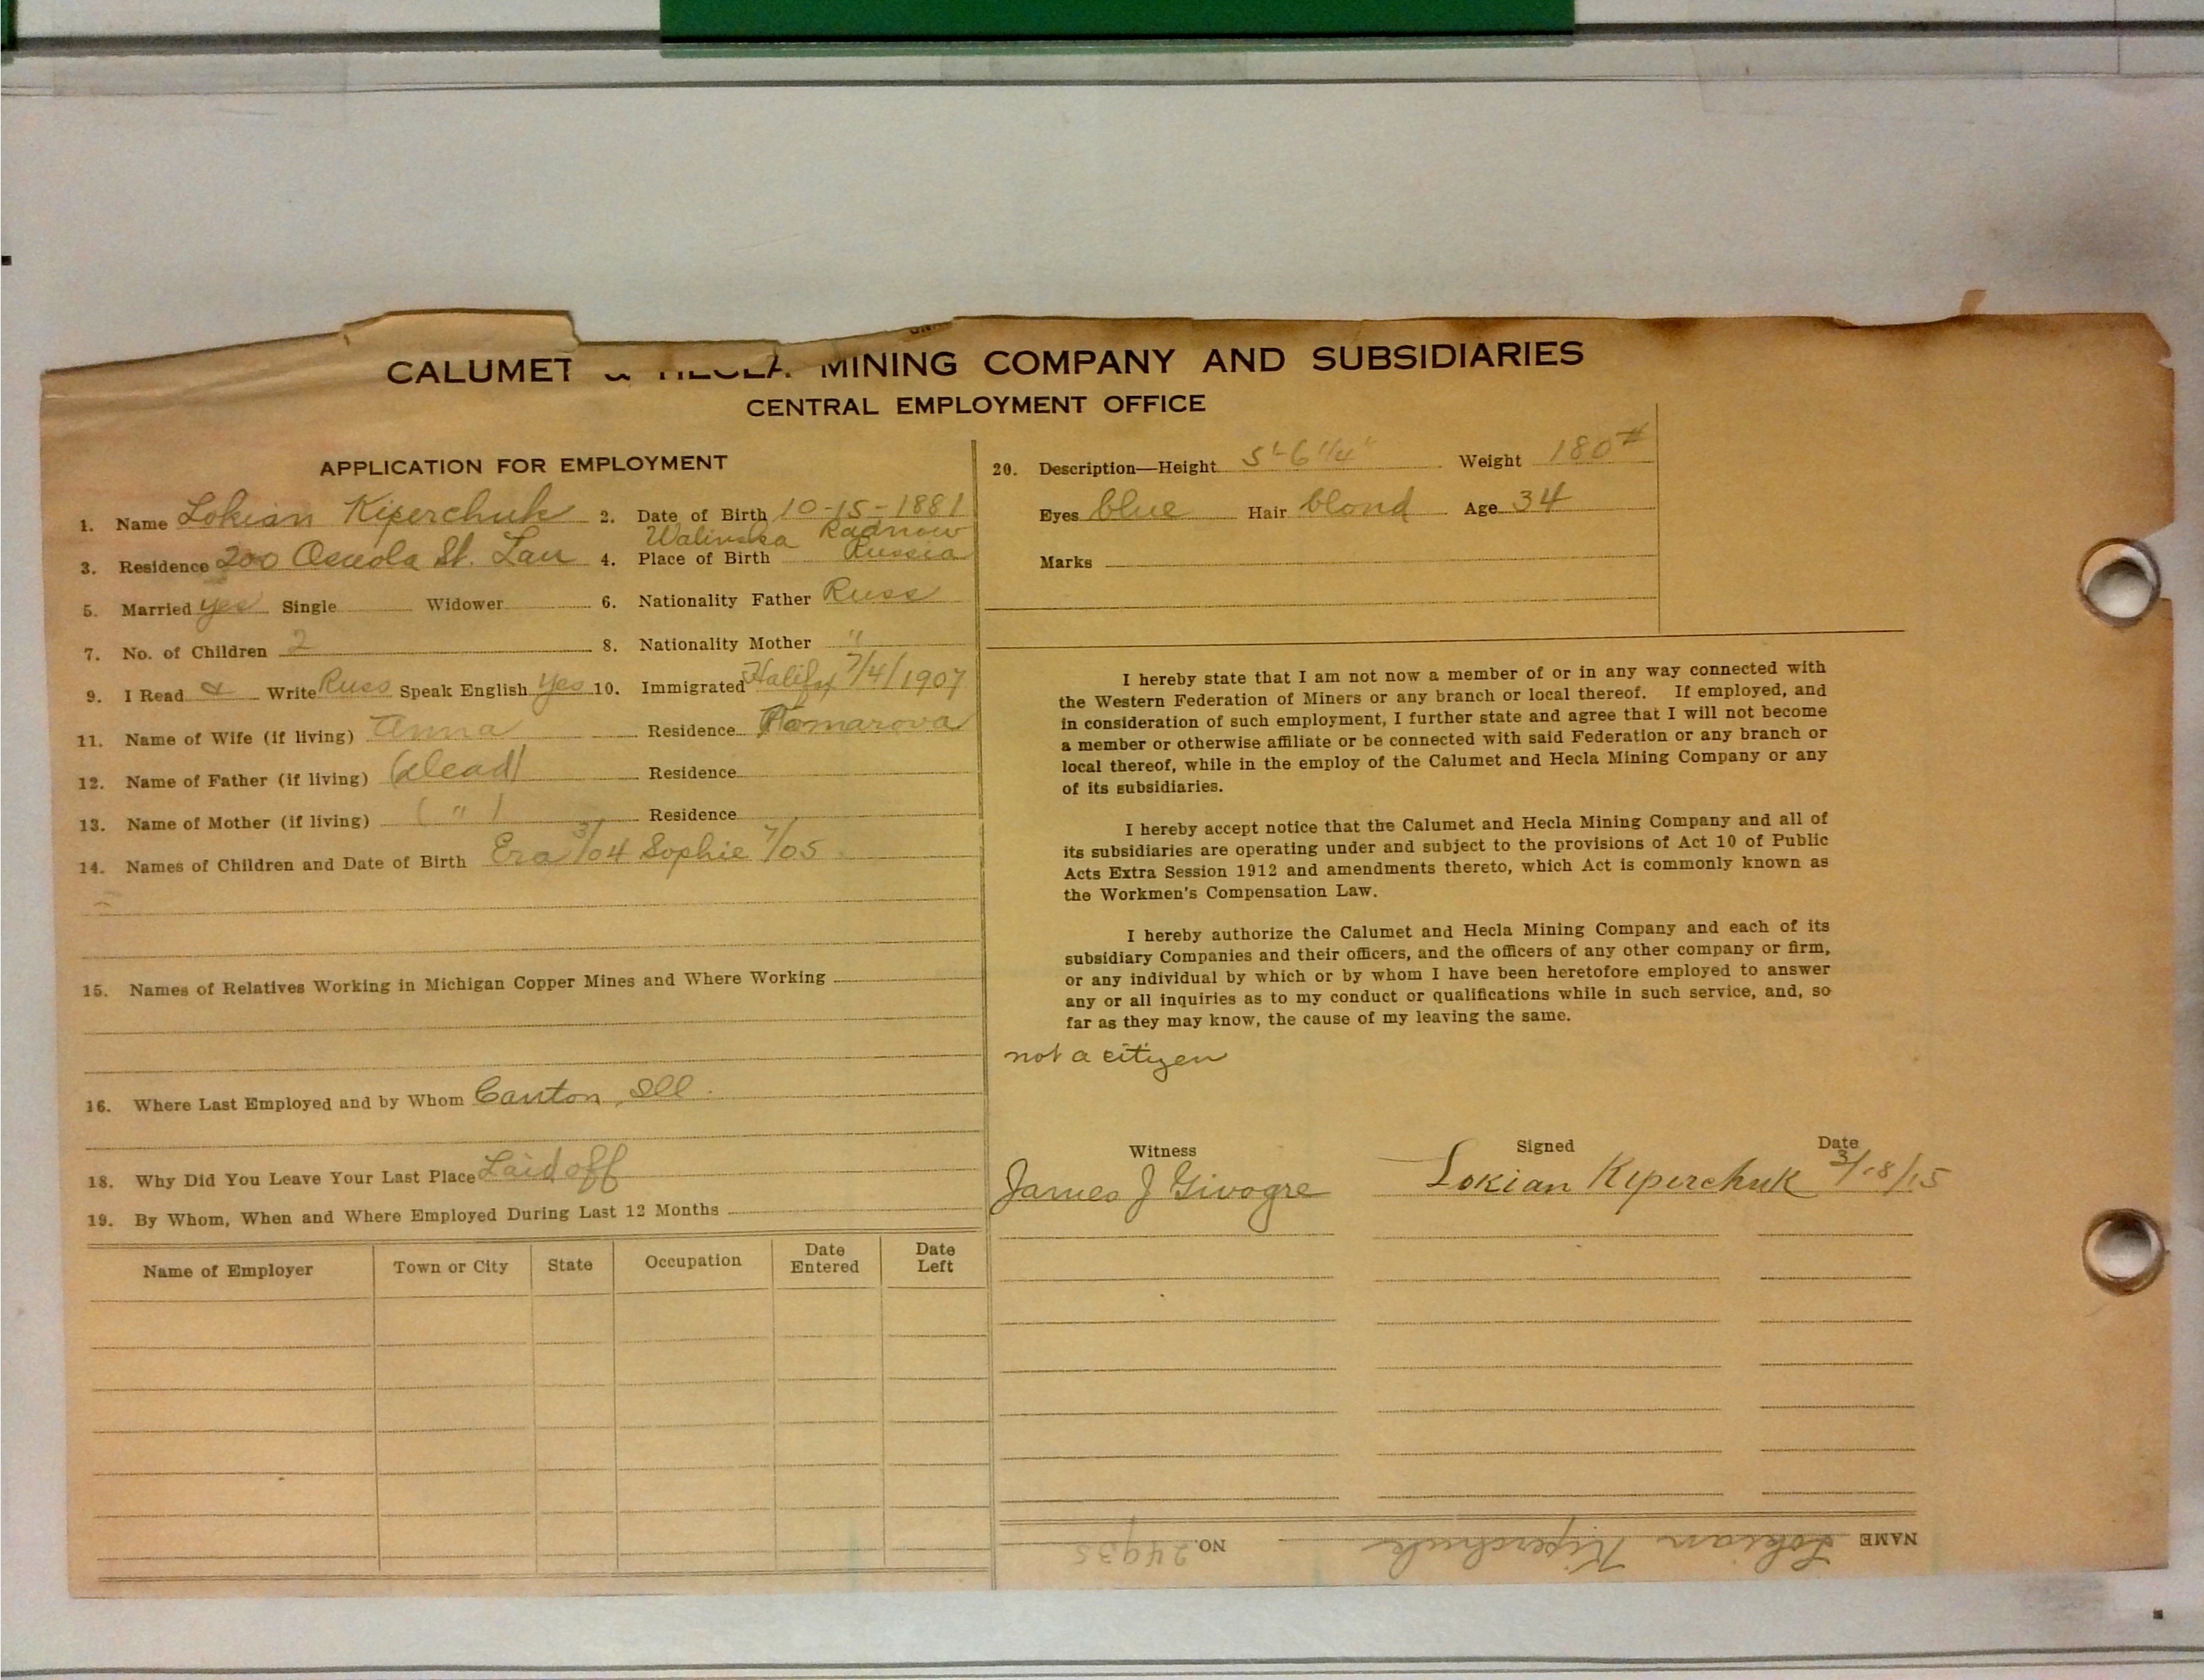 CALUMET & HECLA MINING COMPANY AND SUBSIDIARIES
CENTRAL EMPLOYMENT OFFICE
APPLICATION FOR EMPLOYMENT
1. Name Lokian Kiperchuk 2. Date of Birth 10-15-1881
Walinska Radnow
3. Residence 200 Osceola St. Lau 4. Place of Birth Russia
5. Married yes Single Widower 6. Nationality Father Russ
7. No. of Children 2 8. Nationality Mother "
9. I Read & Write Russ Speak English yes 10. Immigrated Halifx 7/4/1907
11. Name of Wife (if living) Anna Residence Komarova
12. Name of Father (if living) (dead) Residence
13. Name of Mother (if living) ( " ) Residence
14. Names of Children and Date of Birth Era 3/04 Sophie 7/05
15. Names of Relatives Working in Michigan Copper Mines and Where Working
16. Where Last Employed and by Whom Canton, Ill.
18. Why Did You Leave Your Last Place Laid off
19. By Whom, When and Where Employed During Last 12 Months
Name of Employer Town or City State Occupation Date Entered Date Left
20. Description—Height 5'-6 1/4" Weight 180#
Eyes blue Hair blond Age 34
Marks
I hereby state that I am not now a member of or in any way connected with
the Western Federation of Miners or any branch or local thereof. If employed, and
in consideration of such employment, I further state and agree that I will not become
a member or otherwise affiliate or be connected with said Federation or any branch or
local thereof, while in the employ of the Calumet and Hecla Mining Company or any
of its subsidiaries.
I hereby accept notice that the Calumet and Hecla Mining Company and all of
its subsidiaries are operating under and subject to the provisions of Act 10 of Public
Acts Extra Session 1912 and amendments thereto, which Act is commonly known as
the Workmen's Compensation Law.
I hereby authorize the Calumet and Hecla Mining Company and each of its
subsidiary Companies and their officers, and the officers of any other company or firm,
or any individual by which or by whom I have been heretofore employed to answer
any or all inquiries as to my conduct or qualifications while in such service, and, so
far as they may know, the cause of my leaving the same.
not a citizen
Witness Signed Date
James J Givogre Lokian Kiperchuk 3/18/15
NAME Lokian Kiperchuk NO. 24935